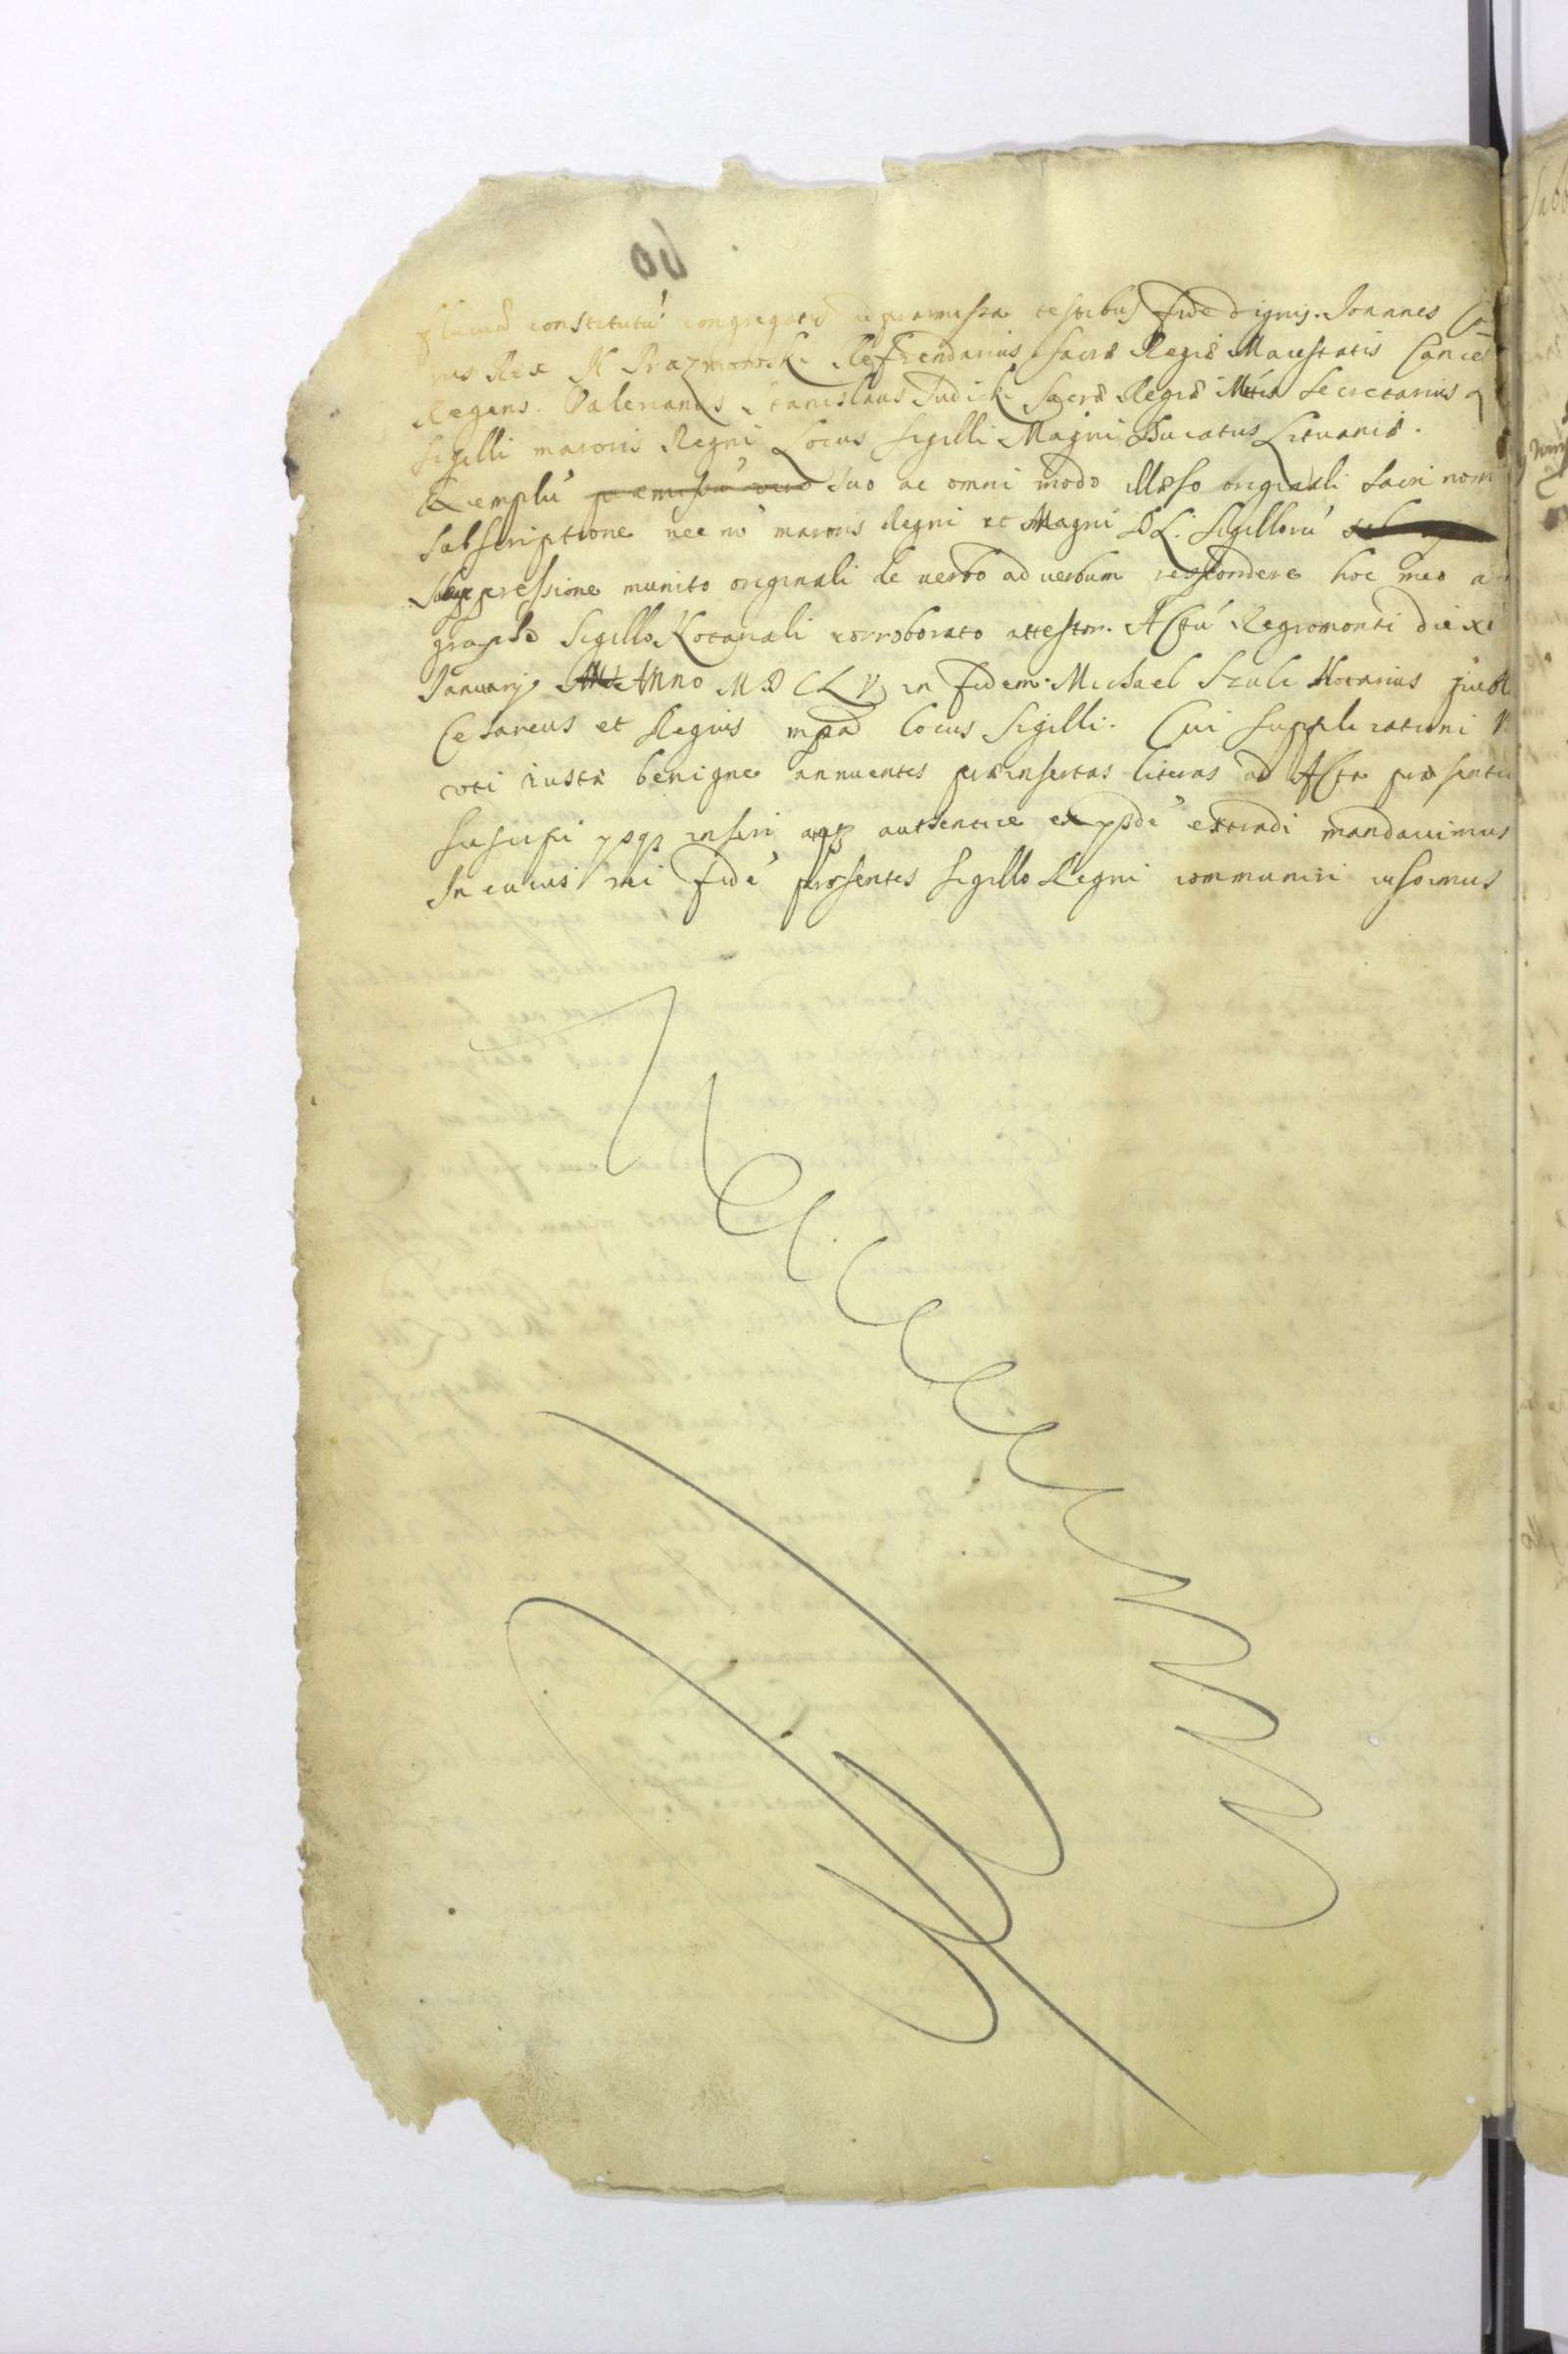 constitutú congregatis ad praemissa testibus fide dignis. Joannes Ca
rus Rex N Prazmowski Refrendarius Sacrae Regiae Maiestatis Cance
Regens. Valerianus Stanislaus Judicki Sacrae Regiae Mttis Secretarius
Sigilli maioris Regni Locus Sigilli Magni Ducatus Lituaniae.
Exemplú suo ac omni modo illaeso originali Sacri nom
Subscriptione nec nó maioris Regni et Magni D L. Sigillorú
Suppressione munito originali de verbo ad verbum respondere hoc meo a
grapho Sigillo Notariali corroborato attestor. Actú Regiomonti die xi
Januarij Anno MDCLV in fidem. Michael Szulc Notarius publ
Cesareus et Regius mpad Locus Sigilli. Cui supplicationi
uti iustae benigne annuentes praeinsertas literas ad Acta praesenti
suscipi ysqz inseri atqz authentice extradi mandavimus
In cuius rei fidé praesentes Sigillo Regni communiri iussimus